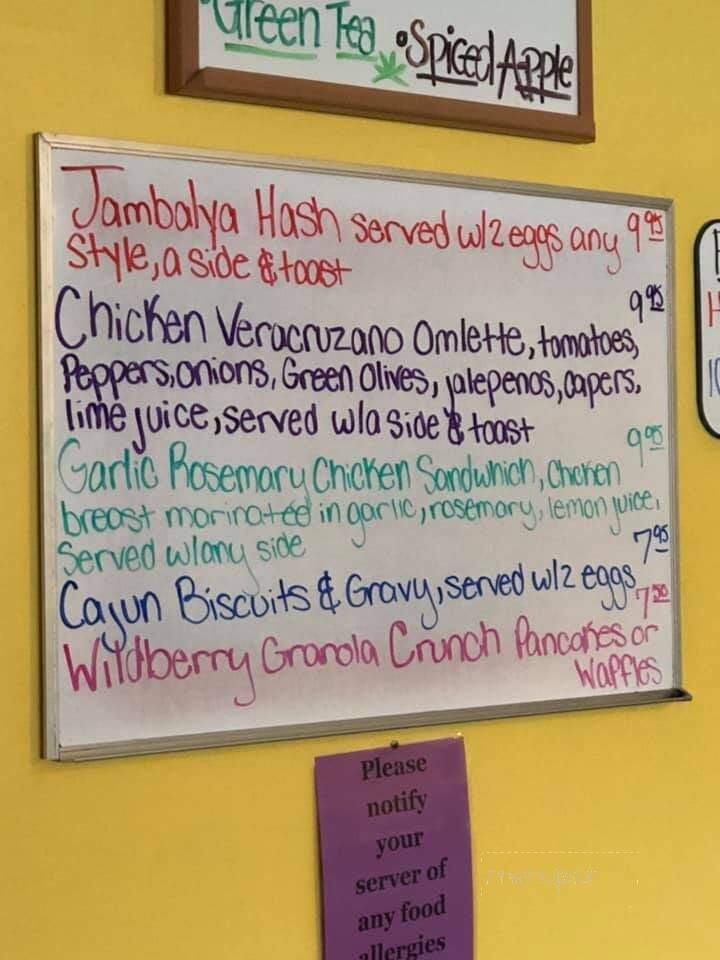 •Green Tea •Spiced Apple
Jambalya Hash served w/2 eggs any 9 95
Style, a side & toast
9 95
Chicken Veracruzano Omlette, tomatoes,
Peppers, onions, Green Olives, jalepenos, capers,
lime juice, served w/a side & toast
9 95
Garlic Rosemary Chicken Sandwhich, Chicken
breast marinated in garlic, rosemary, lemon juice,
Served w/any side
7 95
Cajun Biscuits & Gravy, served w/2 eggs
7 50
Wildberry Granola Crunch Pancakes or
Waffles
Please
notify
your
server of
any food
allergies